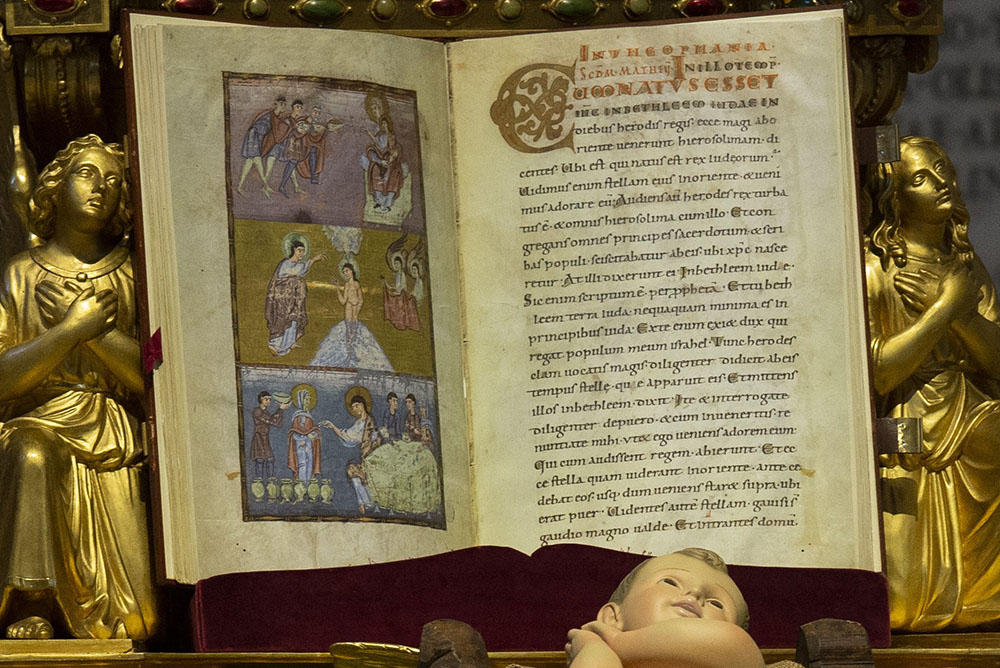 IN THEOPHANIA.
SCDM. MATHEŪ. IN ILLO TEMP̄.
CUM NATUS ESSET
IHC IN BETHLEEM IUDAE IN
diebus herodis regis. ecce magi abo
riente venerunt hierosolimam. di
centes. Ubi est qui natus est rex Iudeorum.
Vidimus enim stellam eius in oriente. & veni
mus adorare eū; Audiens aū herodes rex turba
tus ē. & omnis hierosolima cum illo. Et con
gregans omnes principes sacerdotum. & scri
bas populi. sciscitabatur ab eis. ubi xp̄c nasce
retur. At illi dixerunt ei. In bethleem iudę.
Sic enim scriptum ē. per pphetā. Et tu beth
leem terra iuda. nequaquam minima es in
principibus iuda. Ex te enim exi& dux. qui
regat populum meum israhel. Tunc herodes
clam uocatis magis. diligenter didicit ab eis
tempus stellę. quę apparuit eis. Et mittens
illos in bethleem. dixit. Ite & interrogate
diligenter de puero. & cum inueneritis. re
nuntiate mihi. ut & ego ueniens adorem eum.
Qui cum audissent regem. abierunt. Et ec
ce stella quam uiderant in oriente. ante ce
debat eos. usq; dum ueniens staret supra. ubi
erat puer. Videntes autē stellam. gauisi sī
gaudio magno ualde. Et intrantes domū.